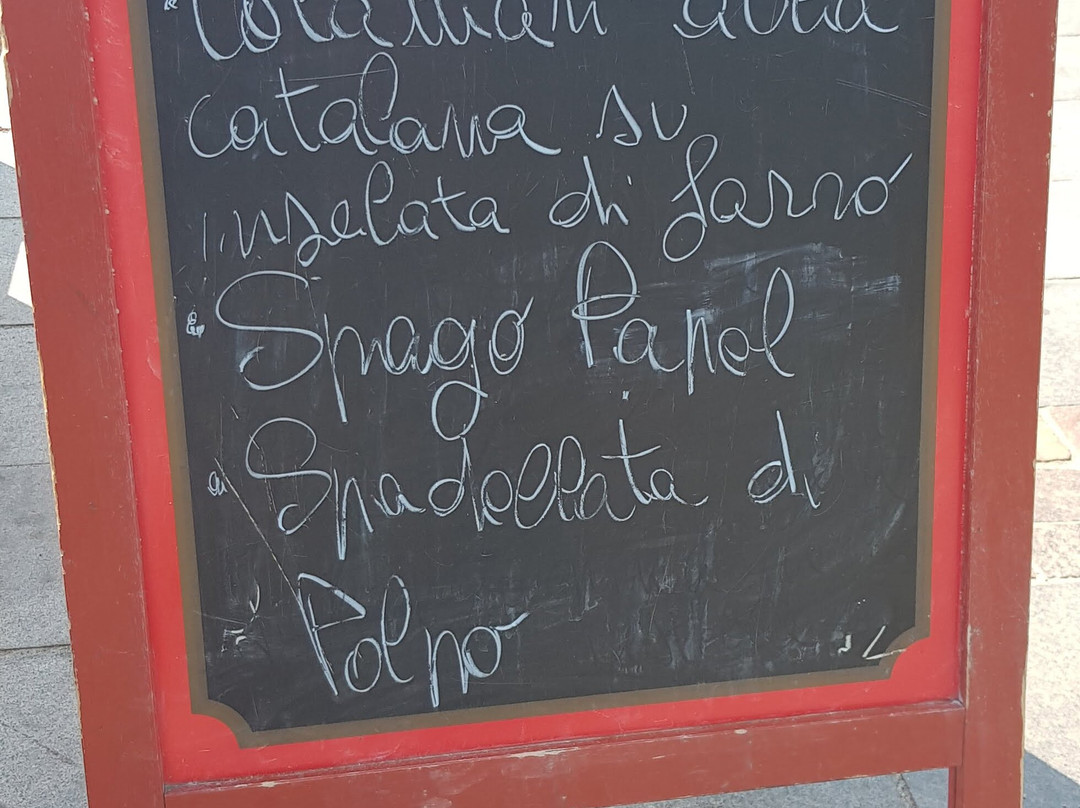 Calamari alla
catalana su
inselata di farro
Spago Papel
Spadellata di
Polpo